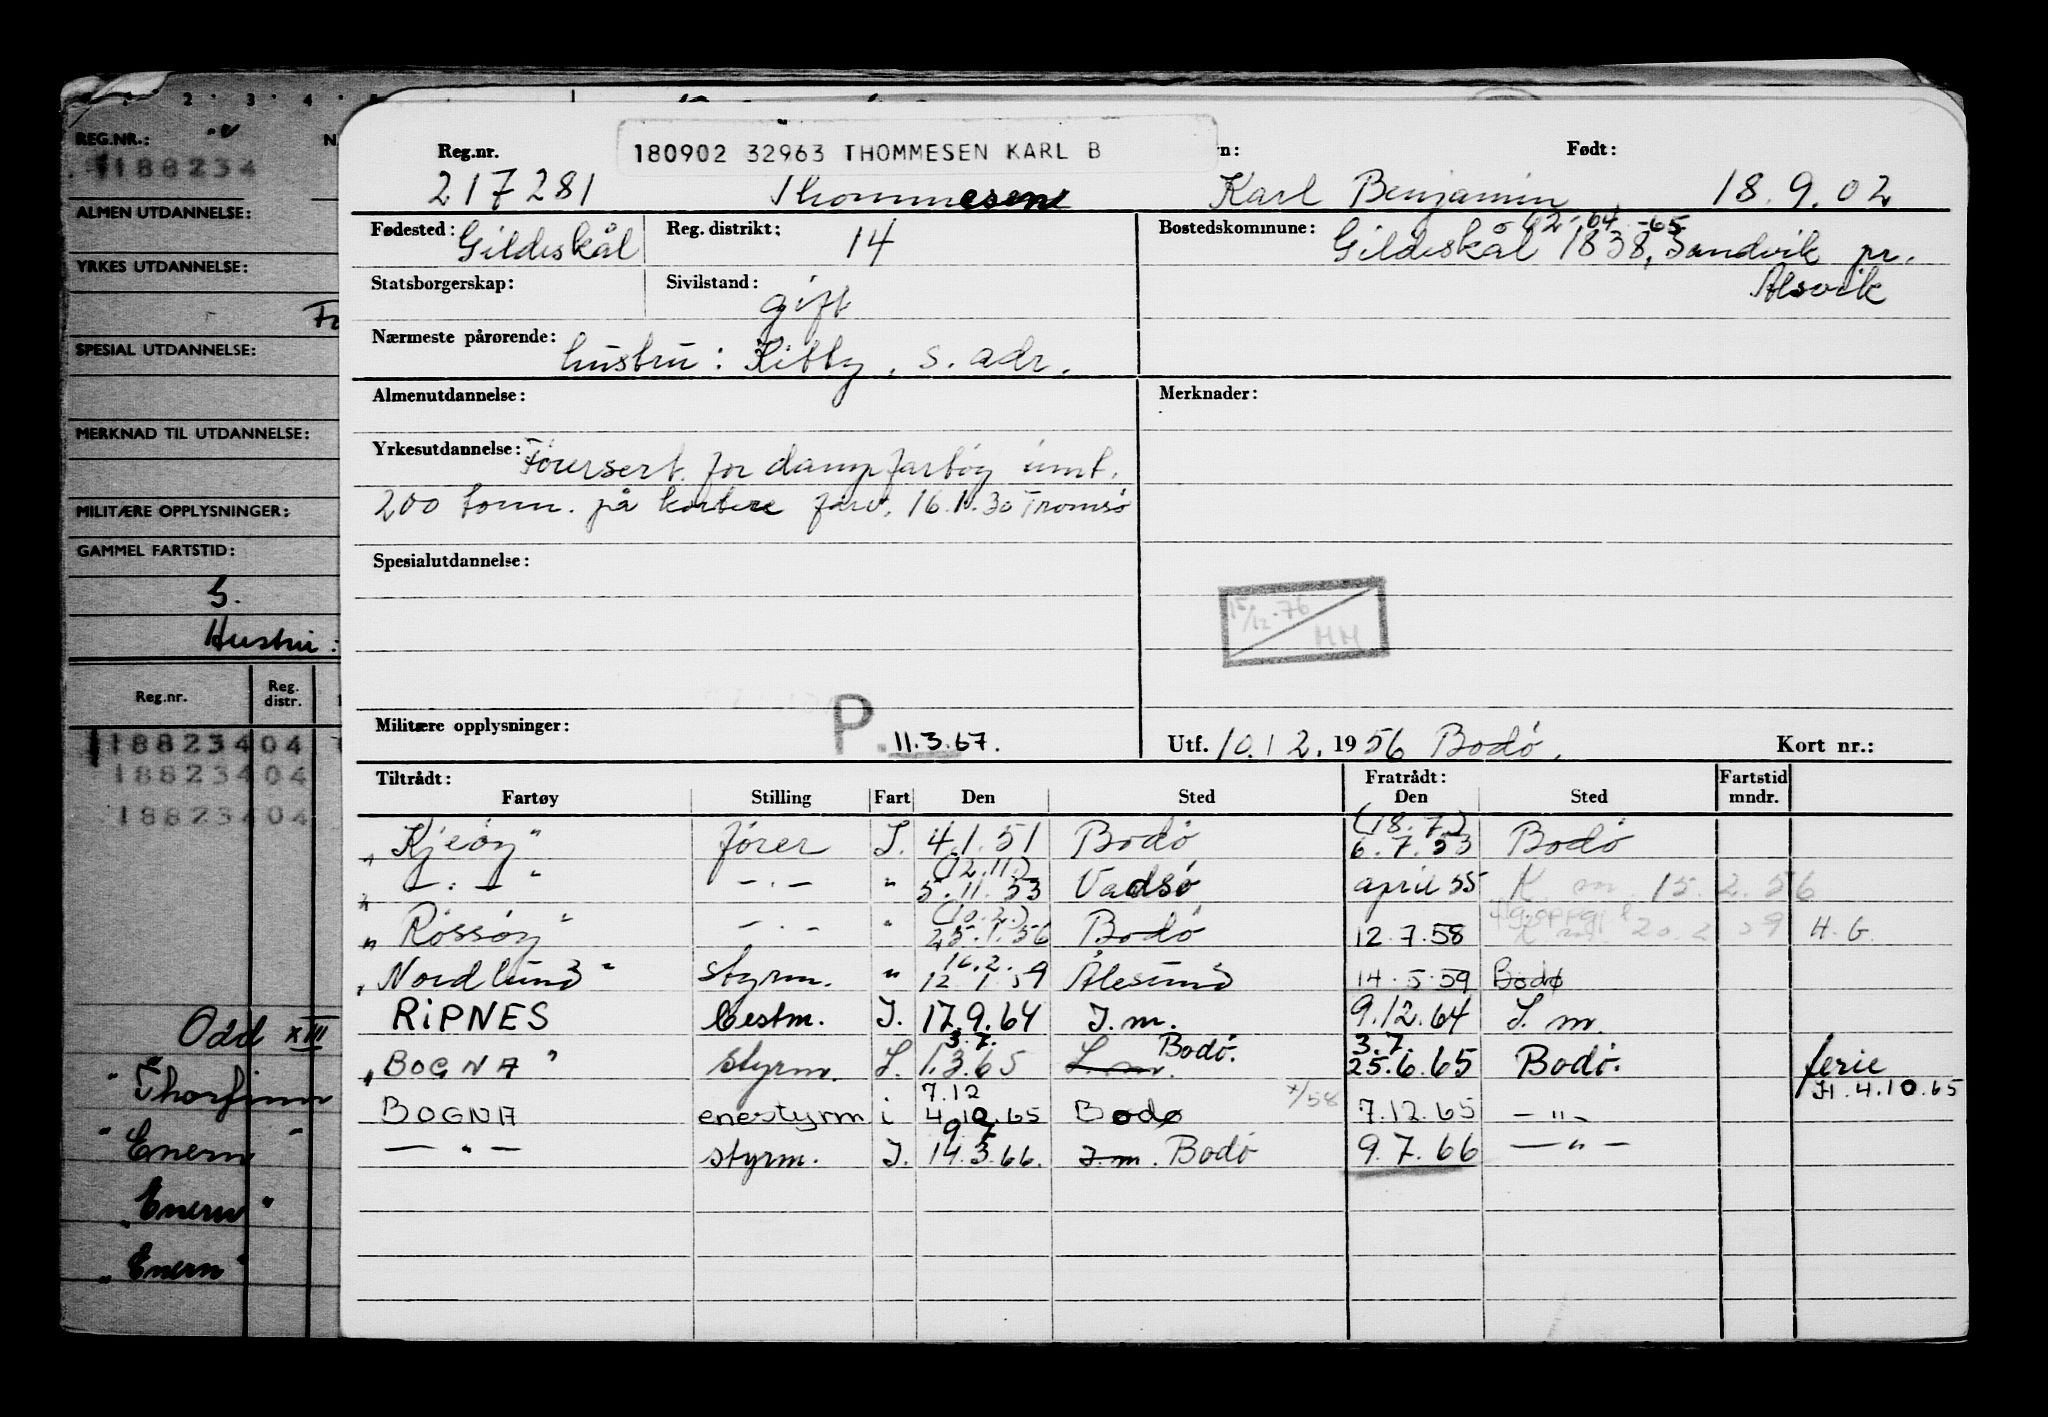 2 3 4
REG.NR.: N
188234
ALMEN UTDANNELSE:
YRKES UTDANNELSE:
SPESIAL UTDANNELSE:
MERKNAD TIL UTDANNELSE:
MILITÆRE OPPLYSNINGER:
GAMMEL FARTSTID:
G.
Hustru:
Reg.nr. Reg. distr.
188234 04
188234 04
188234 04
Odd XIII
"Thorfinn
"Enern"
"Enern"
"Enern"
180902 32963 THOMMESEN KARL B
Reg.nr. Født:
217281 Thommesen Karl Benjamin 18.9.02
Fødested: Gildeskål Reg. distrikt: 14 Bostedskommune: 62-64-65
Gildeskål 1838, Sandvik pr.
Alsvik
Statsborgerskap: Sivilstand: gift
Nærmeste pårørende: hustru: Kitty, s. adr.
Almenutdannelse: Merknader:
Yrkesutdannelse:Førersert. for dampfartøy inntil
200 tonn. på kortere farv. 16.1.30 Tromsø
Spesialutdannelse:
15/12-76
HH
Militære opplysninger: P. 11.3.67. Utf. 10.12.1956 Bodø. Kort nr.:
Tiltrådt: Fratrådt: Fartstid
Fartøy Stilling Fart Den Sted Den Sted mndr.
"Kjeøy" fører I. 4.1.51 Bodø (18.7.) 6.7.53 Bodø
" — . — " — . — " (12.11.) 5.11.53 Vadsø april 55 K. 15.2.56
"Røssøy" — . — " (10.2.) 25.1.56 Bodø 12.7.58 H.G.
"Nordlund" styrm. " 16.2. 12.1.59 Ålesund 14.5.59 Bodø
RIPNES bestm. I. 17.9.64 I.m. 9.12.64 I.m.
"BOGNA" styrm. I. 3.7. 1.3.65 I.m. Bodø. 3.7. 25.6.65 Bodø. ferie
H. 4.10.65
BOGNA enestyrm i 7.12 4.10.65 Bodø x/58 7.12.65 — " —
— " — styrm. I. 9.7 14.3.66. I.m. Bodø 9.7.66 — " —